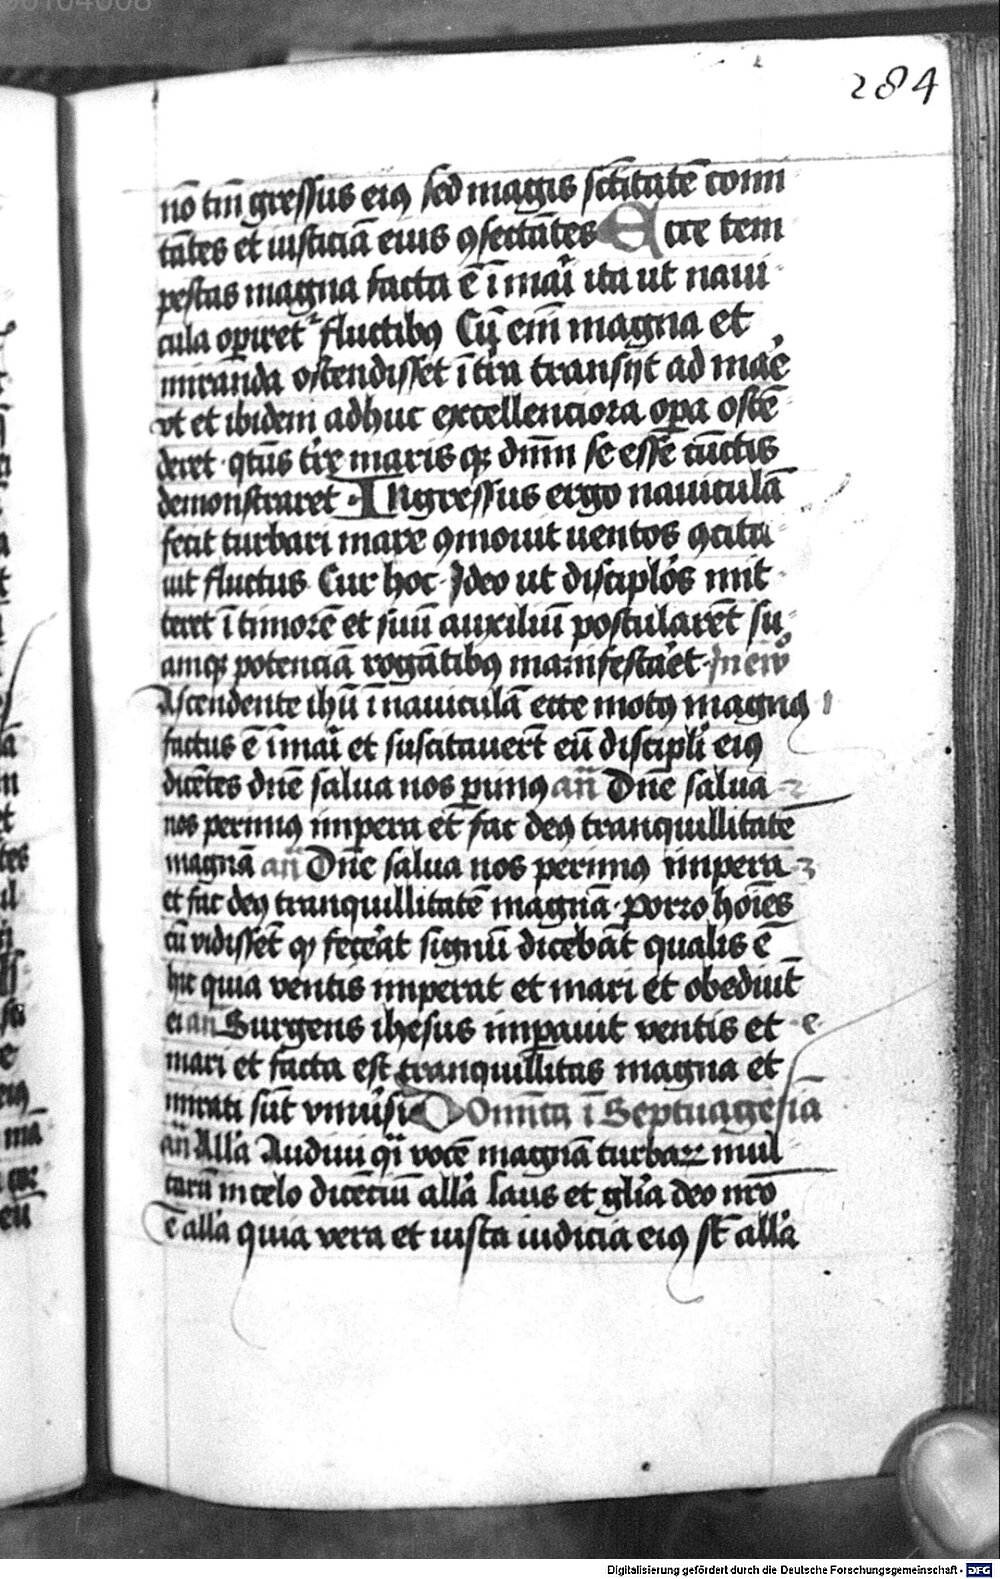 284
nō tm̄ gressus eiꝰ sed magis sc̄titatē comi
tātes et iusticiā eius ꝯsectātes Ecce tem
pestas magna facta ē ī mari ita ut navi
cula operiret᷑ fluctibꝰ Cū em̄ magna et
miranda ostendisset ī tr̄a transijt ad mare
vt et ibidem adhuc excellenciora opa ostē
deret qͣtus tr̄e maris qꝫ dn̄m se esse cūctis
demonstraret Ingressus ergo naviculā
fecit turbari mare ꝯmovit uentos ꝯcita
uit fluctus Cur hoc Ideo ut discip̄los mit
teret ī timorē et suū auxiliū postularēt su
amqꝫ potenciā rogātibꝰ manifestaret In ew̄
Ascendente ih̄u ī naviculā ecce motꝰ magnꝰ
factus ē ī mari et suscitaverūt eū discipli eiꝰ
dicētes dn̄e salua nos perimꝰ an̄ Dn̄e salua
nos perimꝰ impera et fac deꝰ tranquillitatē
magnā an̄ Dn̄e salua nos perimꝰ impera
et fac deꝰ tranquillitatē magnā porro hoīes
cū vidissēt qͥ fecerat signū dicebāt qualis ē
hic quia ventis imperat et mari et obediūt
ei an̄ Surgens ihesus imperavit ventis et
mari et facta est tranquillitas magna et
mirati sūt vniuersi Dominica ī Septuagesīa
an̄ All̄a Audiui q̄i vocē magnā turbarꝝ mul
tarū in celo dicenciū all̄a laus et gl̄ia deo nr̄o
ē all̄a quia vera et iusta iudicia eiꝰ st̄ all̄a
Digitalisierung gefördert durch die Deutsche Forschungsgemeinschaft - DFG